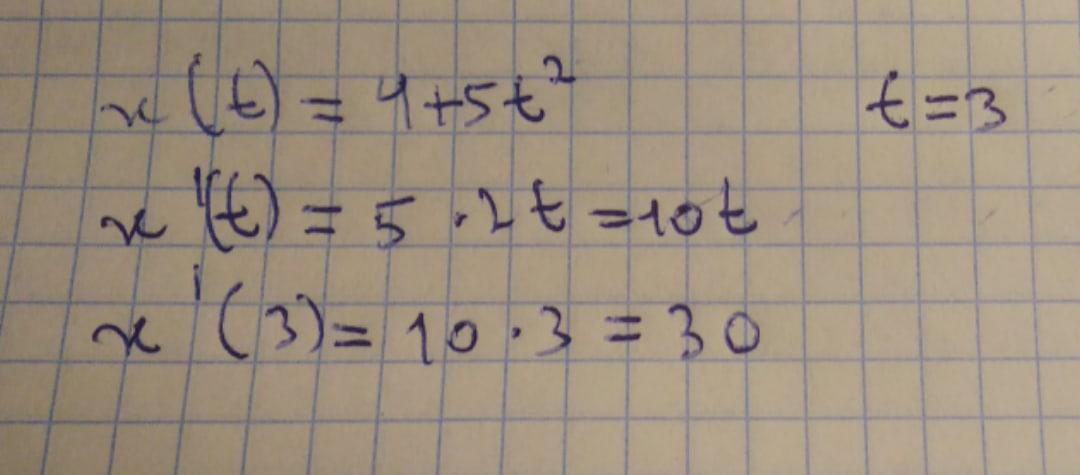 x(t) = 4+5t² t=3
x'(t) = 5 · 2t =10t
x'(3)= 10 · 3 = 30